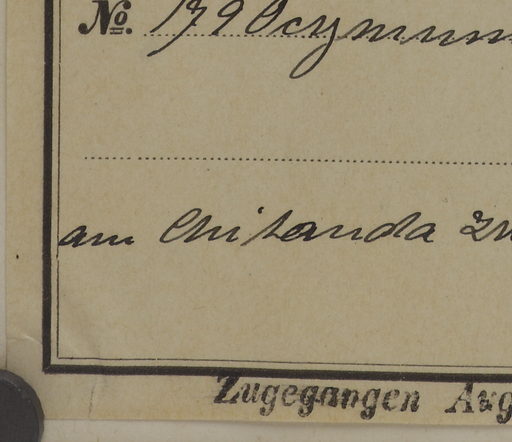 No. 179 Ocymum
am Chitanda
Zugegangen Aug